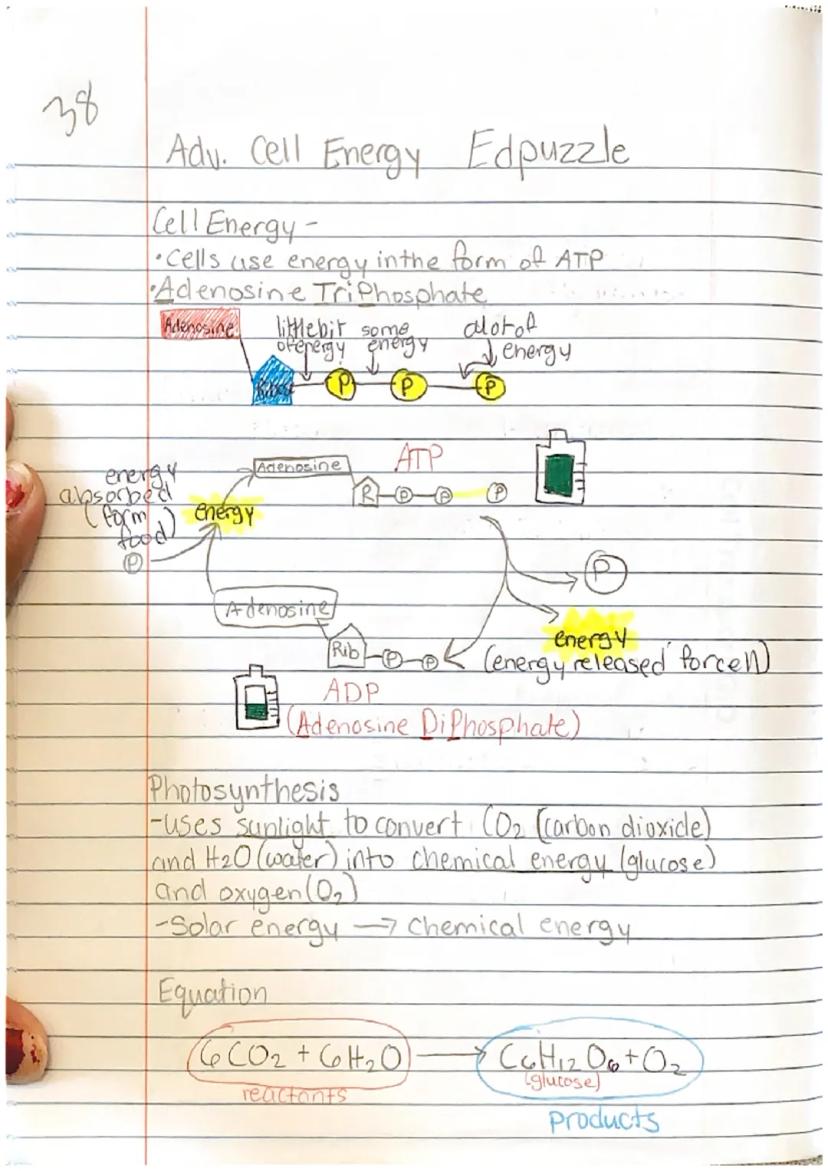 38
Adv. Cell Energy Edpuzzle
Cell Energy -
• Cells use energy in the form of ATP
• Adenosine TriPhosphate
Adenosine
little bit of energy
some energy
a lot of energy
Ribose
P
P
P
ATP
Adenosine
R
P
P
P
energy
absorbed
(form
food)
energy
P
P
Adenosine
energy
(energy released for cell)
Rib
P
P
ADP
(Adenosine DiPhosphate)
Photosynthesis
-uses sunlight to convert CO2 (carbon dioxide)
and H2O (water) into chemical energy (glucose)
and oxygen (O2)
-Solar energy → Chemical energy
Equation
6CO2 + 6H2O → C6H12O6 + O2
(glucose)
reactants
products